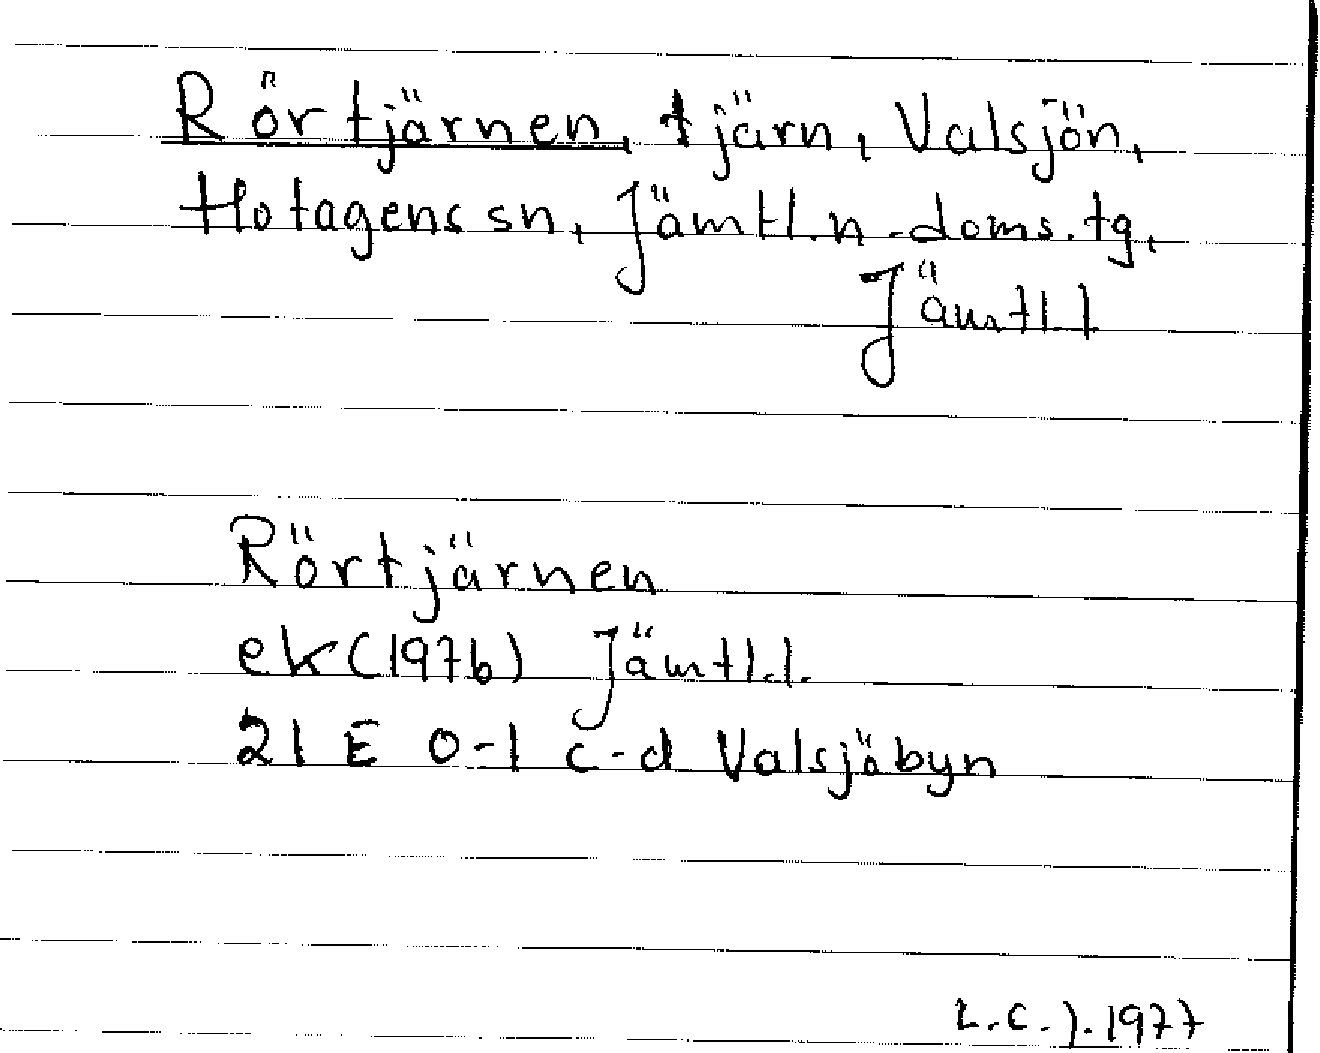 Rörtjärnen, tjärn, Valsjön,
Hotagens sn, Jämtl.n.doms.tg,
Jämtl.l
Rörtjärnen
ek(1976) Jämtl.l.
21 E 0-1 c-d Valsjöbyn
L.C.J.1977